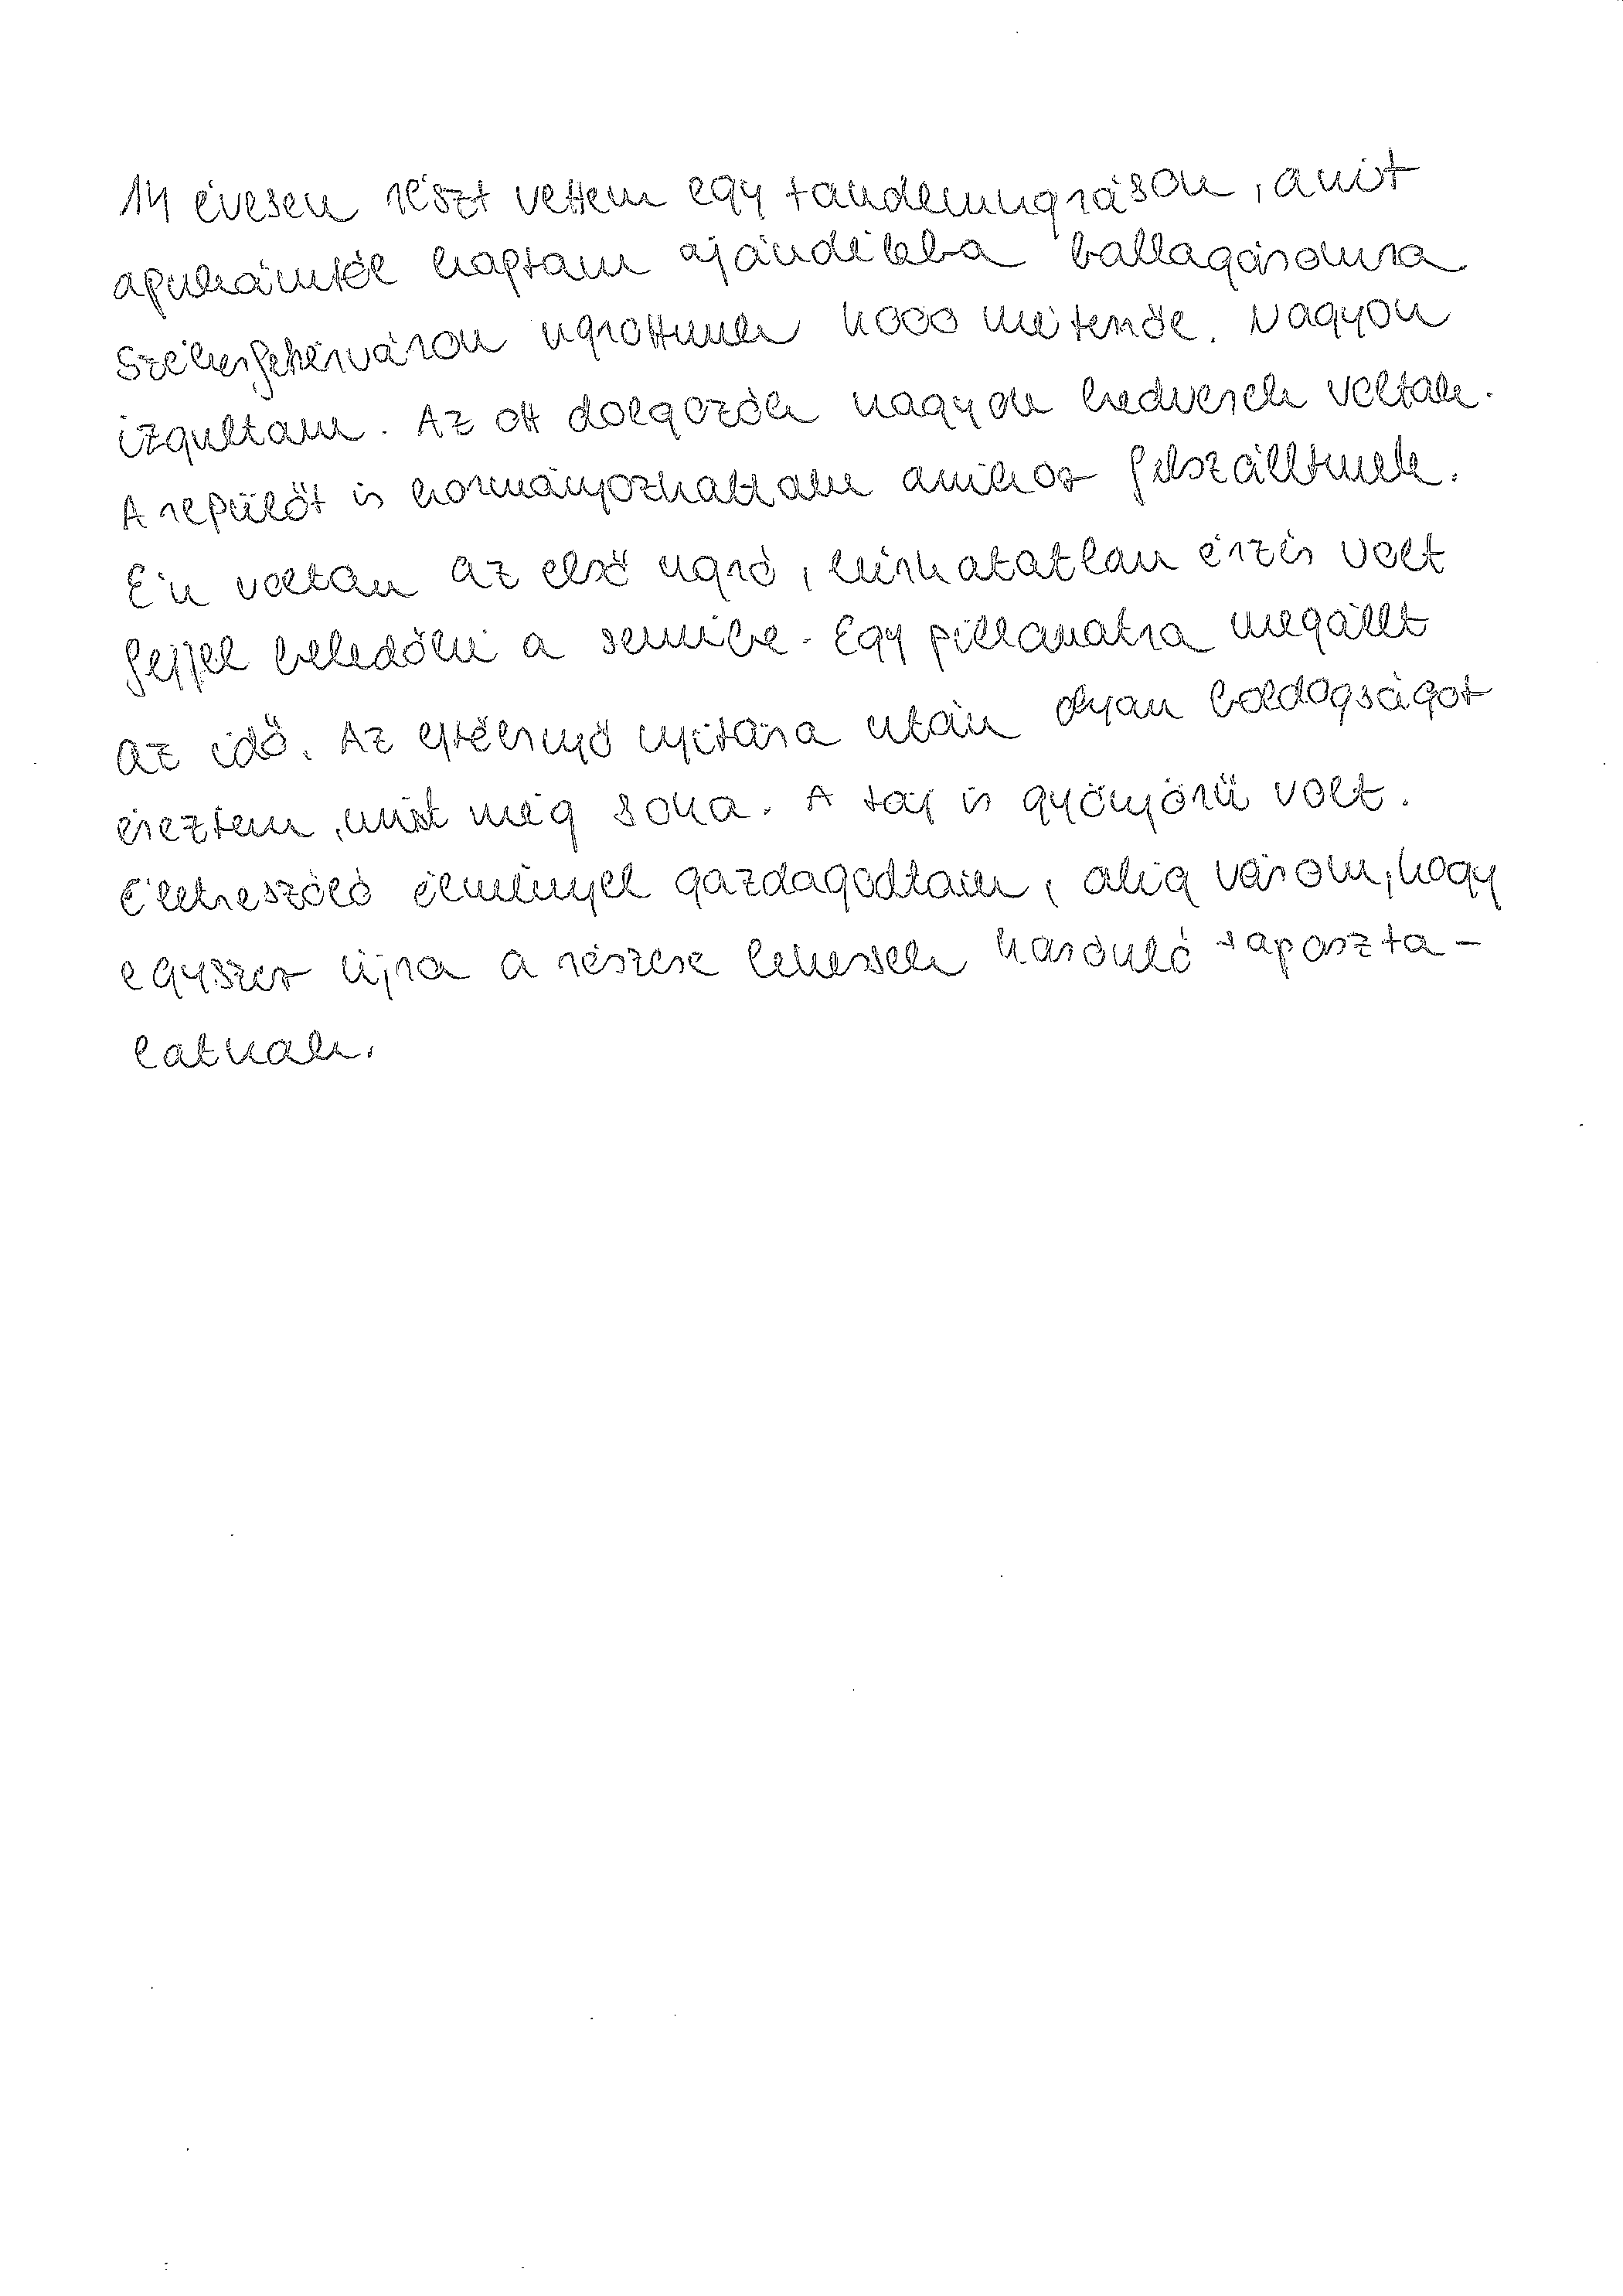 14 évesen részt vettem egy tandemugráson, amit
apukámtól kaptam ajándékba ballagásomra.
Székesfehérváron ugrottunk 4000 méterről. Nagyon
izgultam. Az ott dolgozók nagyon kedvesek voltak.
A repülőt is kormányozhattam amikor felszálltunk.
Én voltam az első ugró, leírhatatlan érzés volt
fejjel beledőlni a semmibe. Egy pillanatra megállt
az idő. Az ejtőernyő nyitása után olyan boldogságot
éreztem, mint még soha. A táj is gyönyörű volt.
Életreszóló élménnyel gazdagodtam, alig várom, hogy
egyszer újra a részese lehessek hasonló tapaszta-
latnak.